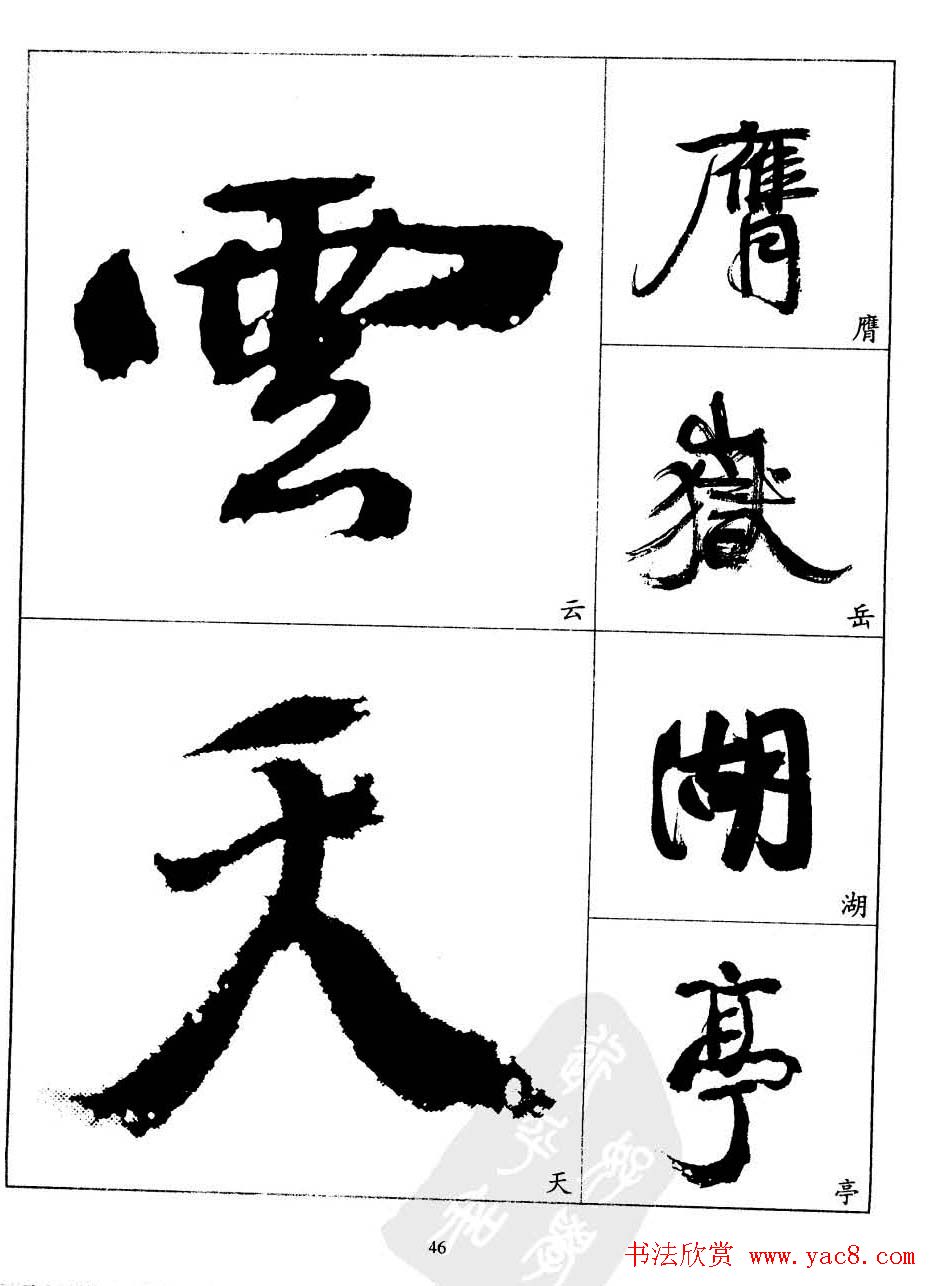 雲
云
天
天
膺
膺
嶽
岳
湖
湖
亭
亭
46
书法欣赏 www.yac8.com